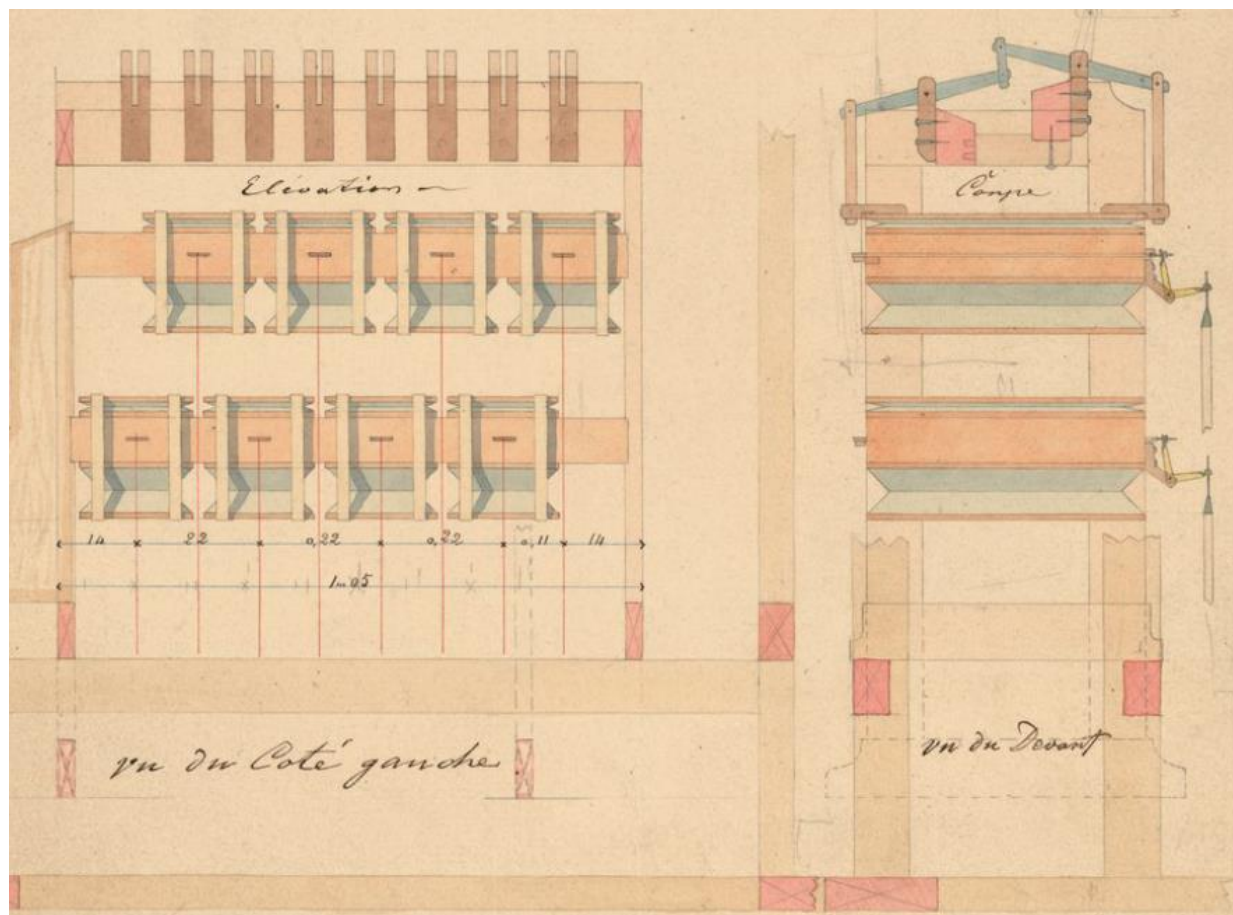 Elévation
Coupe
14 22 0,22 0,22 0,11 14
1m05
vu du Coté gauche
vu du Devant